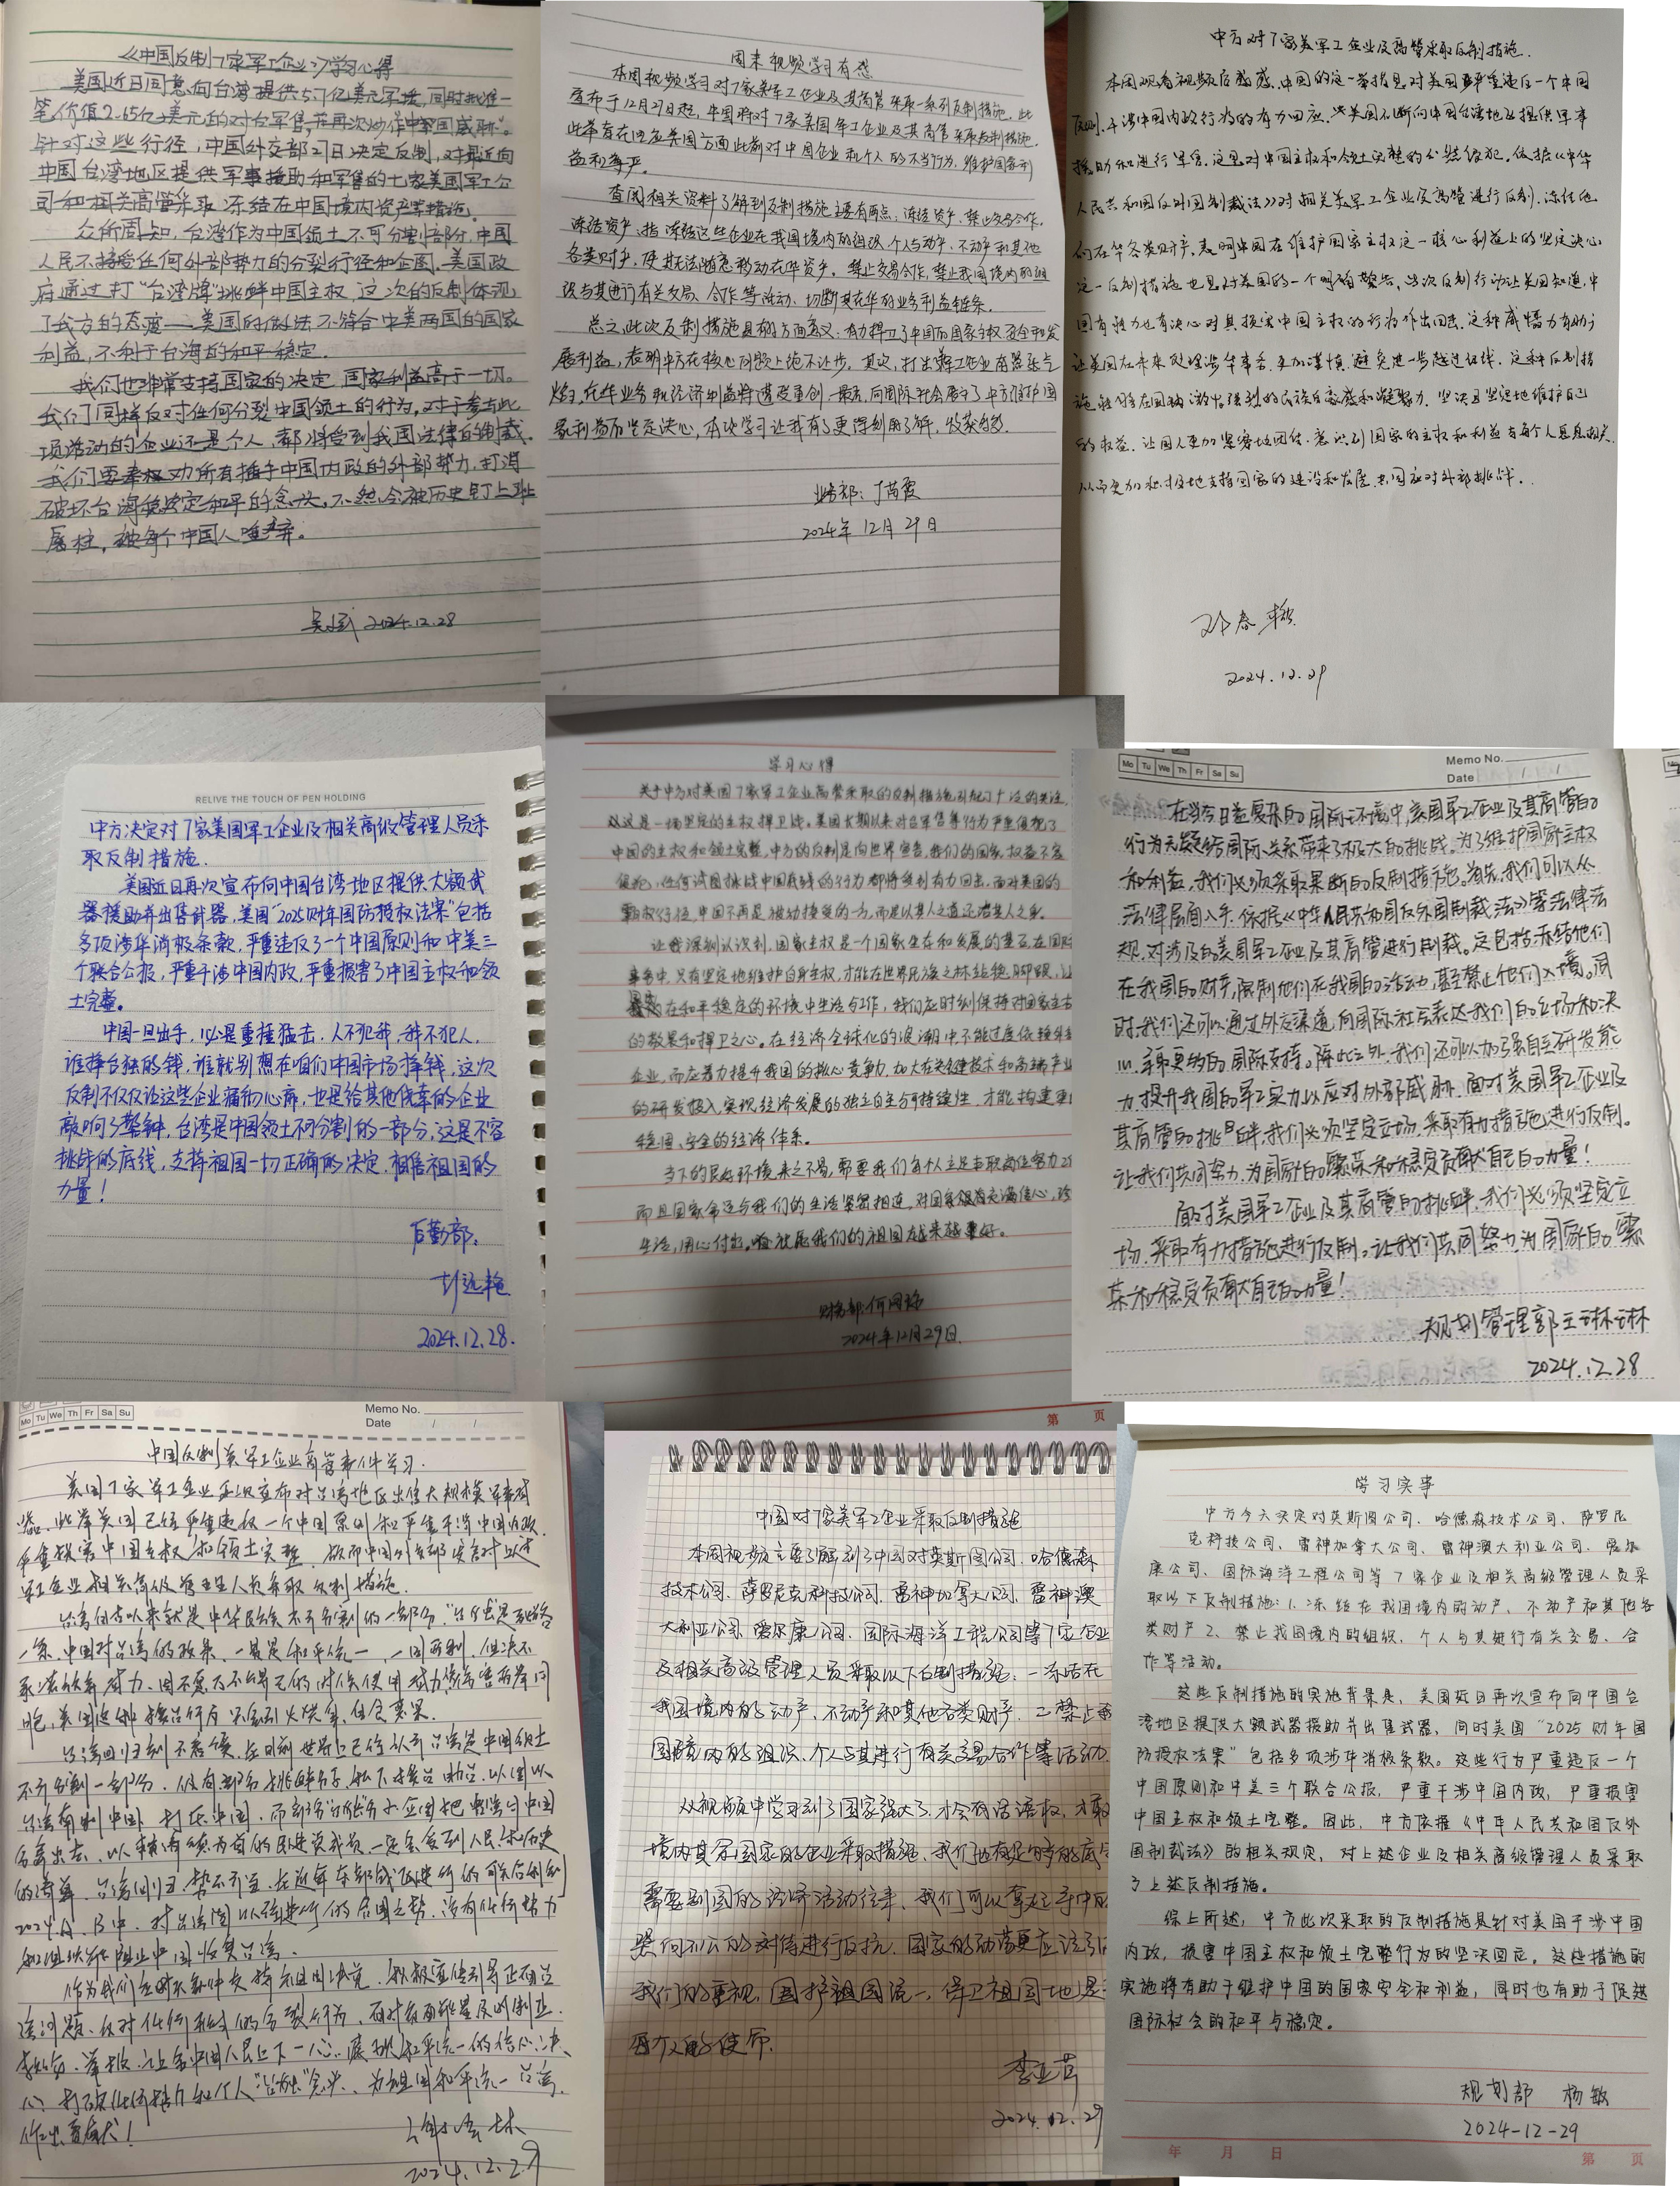 《中国反制7家军工企业》学习心得
美国近日同意向台湾提供5.7亿美元军援,同时批准一
笔价值2.65亿美元的对台军售,并再次炒作"中国威胁"。
针对这些行径,中国外交部27日决定反制,对最近向
中国台湾地区提供军事援助和军售的七家美国军工公
司和相关高管采取冻结在中国境内资产等措施。
众所周知,台湾作为中国领土不可分割部分,中国
人民不接受任何外部势力的分裂行径和企图。美国政
府通过打"台湾牌"挑衅中国主权,这次的反制体现
了我方的态度——美国的做法不符合中美两国的国家
利益,不利于台海的和平稳定.
我们也非常支持国家的决定,国家利益高于一切。
我们同样反对任何分裂中国领土的行为,对于参与此
项活动的企业还是个人,都将受到我国法律的制裁。
我们要奉劝所有插手中国内政的外部势力,打消
破坏台海稳定和平的念头,不然会被历史钉上耻
辱柱,被每个中国人唾弃。
2024.12.28
周末视频学习有感
本周视频学习对7家美军工企业及其高管采取一系列反制措施,此
宣布于12月27日起,中国将对7家美国军工企业及其高管采取反制措施.
此举旨在回应美国方面此前对中国企业和个人的不当行为,维护国家利
益和尊严。
查阅相关资料了解到反制措施主要有两点:冻结资产、禁止交易合作.
冻结资产,指冻结这些企业在我国境内的组织、个人与动产、不动产和其他
各类财产,使其无法随意移动在华资产。禁止交易合作,禁止我国境内的组
织与其进行有关交易、合作等活动,切断其在华的业务利益链条.
总之,此次反制措施具有多方面意义:有力捍卫了中国的国家主权、安全和发
展利益,表明中方在核心问题上绝不让步。其次,打击军工企业嚣张气
焰,在华业务和经济利益将遭受重创.最后,向国际社会展示了中方维护国
家利益的坚定决心,本次学习让我有了更深刻的了解,收获多多.
业务部:丁芮霞
2024年12月29日
中方对7家美军工企业及高管采取反制措施.
本周观看视频后感慨.中国的这一举措是对美国严重违反一个中国
原则,干涉中国内政行为的有力回应.美国不断向中国台湾地区提供军事
援助和进行军售.这是对中国主权和领土完整的公然侵犯.依据《中华
人民共和国反外国制裁法》对相关美军工企业及高管进行反制.冻结他
们在华各类财产.表明中国在维护国家主权这一核心利益上的坚定决心
这一反制措施也是对美国的一个明确警告.当次反制行动让美国知道,中
国有能力也有决心对其损害中国主权的行为作出回击.这种威慑力有助于
让美国在未来处理涉华事务更加谨慎.避免进一步越过红线.这种反制措
施能够在国内激发强烈的民族自豪感和凝聚力.坚决且坚定地维护自己
的权益.让国人更加紧密地团结.意识到国家的主权和利益与每个人息息相关.
从而更加积极地支持国家的建设和发展.共同应对外部挑战.
2024.12.29
RELIVE THE TOUCH OF PEN HOLDING
中方决定对7家美国军工企业及相关高级管理人员采
取反制措施.
美国近日再次宣布向中国台湾地区提供大额武
器援助并出售武器,美国"2025财年国防授权法案"包括
多项涉华消极条款,严重违反了一个中国原则和中美三
个联合公报,严重干涉中国内政,严重损害了中国主权和领
土完整。
中国一旦出手,必是重捶猛击,人不犯我,我不犯人,
谁挣台独的钱,谁就别想在咱们中国市场挣钱,这次
反制不仅仅让这些企业痛彻心扉,也是给其他贪婪的企业
敲响了警钟,台湾是中国领土不可分割的一部分,这是不容
挑战的底线,支持祖国一切正确的决定,相信祖国的
力量!
后勤部:
2024.12.28.
学习心得
关于中方对美国7家军工企业高管采取的反制措施引起了广泛的关注,
这是一场坚定的主权捍卫战。美国长期以来对台军售等行为严重侵犯了
中国的主权和领土完整,中方的反制是向世界宣告,我们的国家权益不容
侵犯,任何试图挑战中国底线的行为都将受到有力回击,面对美国的
霸权行径,中国不再是被动接受的一方,而是以其人之道还治其人之身。
让我深刻认识到,国家主权是一个国家生存和发展的基石,在国际
事务中,只有坚定地维护自身主权,才能在世界民族之林站稳脚跟,让
在和平稳定的环境中生活与工作,我们应时刻保持对国家主权
的敬畏和捍卫之心。在经济全球化的浪潮中不能过度依赖外
企业,而应着力提升我国的核心竞争力,加大在关键技术和高端产业
的研发投入,实现经济发展的独立自主与可持续性,才能构建更
稳固、安全的经济体系。
当下的良好环境来之不易,需要我们每个人立足本职岗位努力工
而且国家命运与我们的生活紧密相连,对国家充满信心,珍
生活,用心付出,我们的祖国越来越更好。
2024年12月29日
第 页
Mo Tu We Th Fr Sa Su
Memo No.
Date / /
在当今日益复杂的国际环境中,美国军工企业及其高管的
行为无疑给国际关系带来了极大的挑战。为了维护国家主权
和利益,我们必须采取果断的反制措施。首先,我们可以从
法律层面入手,依据《中华人民共和国反外国制裁法》等法律法
规,对涉及的美国军工企业及其高管进行制裁。这包括冻结他们
在我国的财产,限制他们在我国的活动,甚至禁止他们入境。同
时,我们还可以通过外交渠道,向国际社会表达我们的立场和决
心,争取更多的国际支持。除此之外,我们还可以加强自主研发能
力,提升我国的军工实力以应对外部威胁.面对美国军工企业及
其高管的挑衅,我们必须坚定立场,采取有力措施进行反制。
让我们共同努力,为国家的繁荣和稳定贡献自己的力量!
面对美国军工企业及其高管的挑衅,我们必须坚定立
场,采取有力措施进行反制。让我们共同努力,为国家的繁
荣和稳定贡献自己的力量!
规划管理部王琳琳
2024.12.28
Mo Tu We Th Fr Sa Su
Memo No.
Date / /
中国反制美军工企业高管事件学习.
美国7家军工企业再次宣布对台湾地区出售大规模军事武
器.此举美国已经严重违反一个中国原则和严重干涉中国内政.
严重损害中国主权和领土完整.故而中国外交部宣告对上述
军工企业相关高级管理人员采取反制措施.
台湾自古以来就是中华民族不可分割的一部分."台独"是死路
一条.中国对台湾的政策.一贯是和平统一,一国两制,但决不
承诺放弃武力.
台湾回归刻不容缓.在目前世界上已经认可台湾是中国领土
不可分割一部分.
作出贡献!
2024.12.29
中国对7家美军工企业采取反制措施
本周视频主要了解到了中国对英斯图公司、哈德森
技术公司、萨罗尼克科技公司、雷神加拿大公司、雷神澳
大利亚公司、爱尔康公司、国际海洋工程公司等7家企业
及相关高级管理人员采取以下反制措施:一、冻结在
我国境内的动产、不动产和其他各类财产.二、禁止我
国境内的组织、个人与其进行有关交易合作等活动.
从视频中学习到了国家强大了,才会有话语权,才敢
境内其它国家的企业采取措施,我们也有足够的底气
需要别国的经济活动往来,我们可以拿起手中的
向不公的对待进行反抗.国家的动荡更应该引
我们的重视,围护祖国统一,保卫祖国土地是
每个人的使命.
李亚芹
2024.12.29
学习实事
中方今天决定对英斯图公司、哈德森技术公司、萨罗尼
克科技公司、雷神加拿大公司、雷神澳大利亚公司、爱尔
康公司、国际海洋工程公司等7家企业及相关高级管理人员采
取以下反制措施:1、冻结在我国境内的动产、不动产和其他各
类财产2、禁止我国境内的组织、个人与其进行有关交易、合
作等活动。
这些反制措施的实施背景是,美国近日再次宣布向中国台
湾地区提供大额武器援助并出售武器,同时美国"2025财年国
防授权法案"包括多项涉华消极条款。这些行为严重违反一个
中国原则和中美三个联合公报,严重干涉中国内政,严重损害
中国主权和领土完整。因此,中方依据《中华人民共和国反外
国制裁法》的相关规定,对上述企业及相关高级管理人员采取
了上述反制措施。
综上所述,中方此次采取的反制措施是针对美国干涉中国
内政,损害中国主权和领土完整行为的坚决回应。这些措施的
实施将有助于维护中国的国家安全和利益,同时也有助于促进
国际社会的和平与稳定。
规划部 杨敏
2024-12-29
年 月 日
第 页